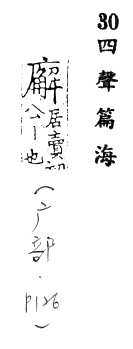 30四聲篇海
廨居賣切
公丨也
(广部．P126)